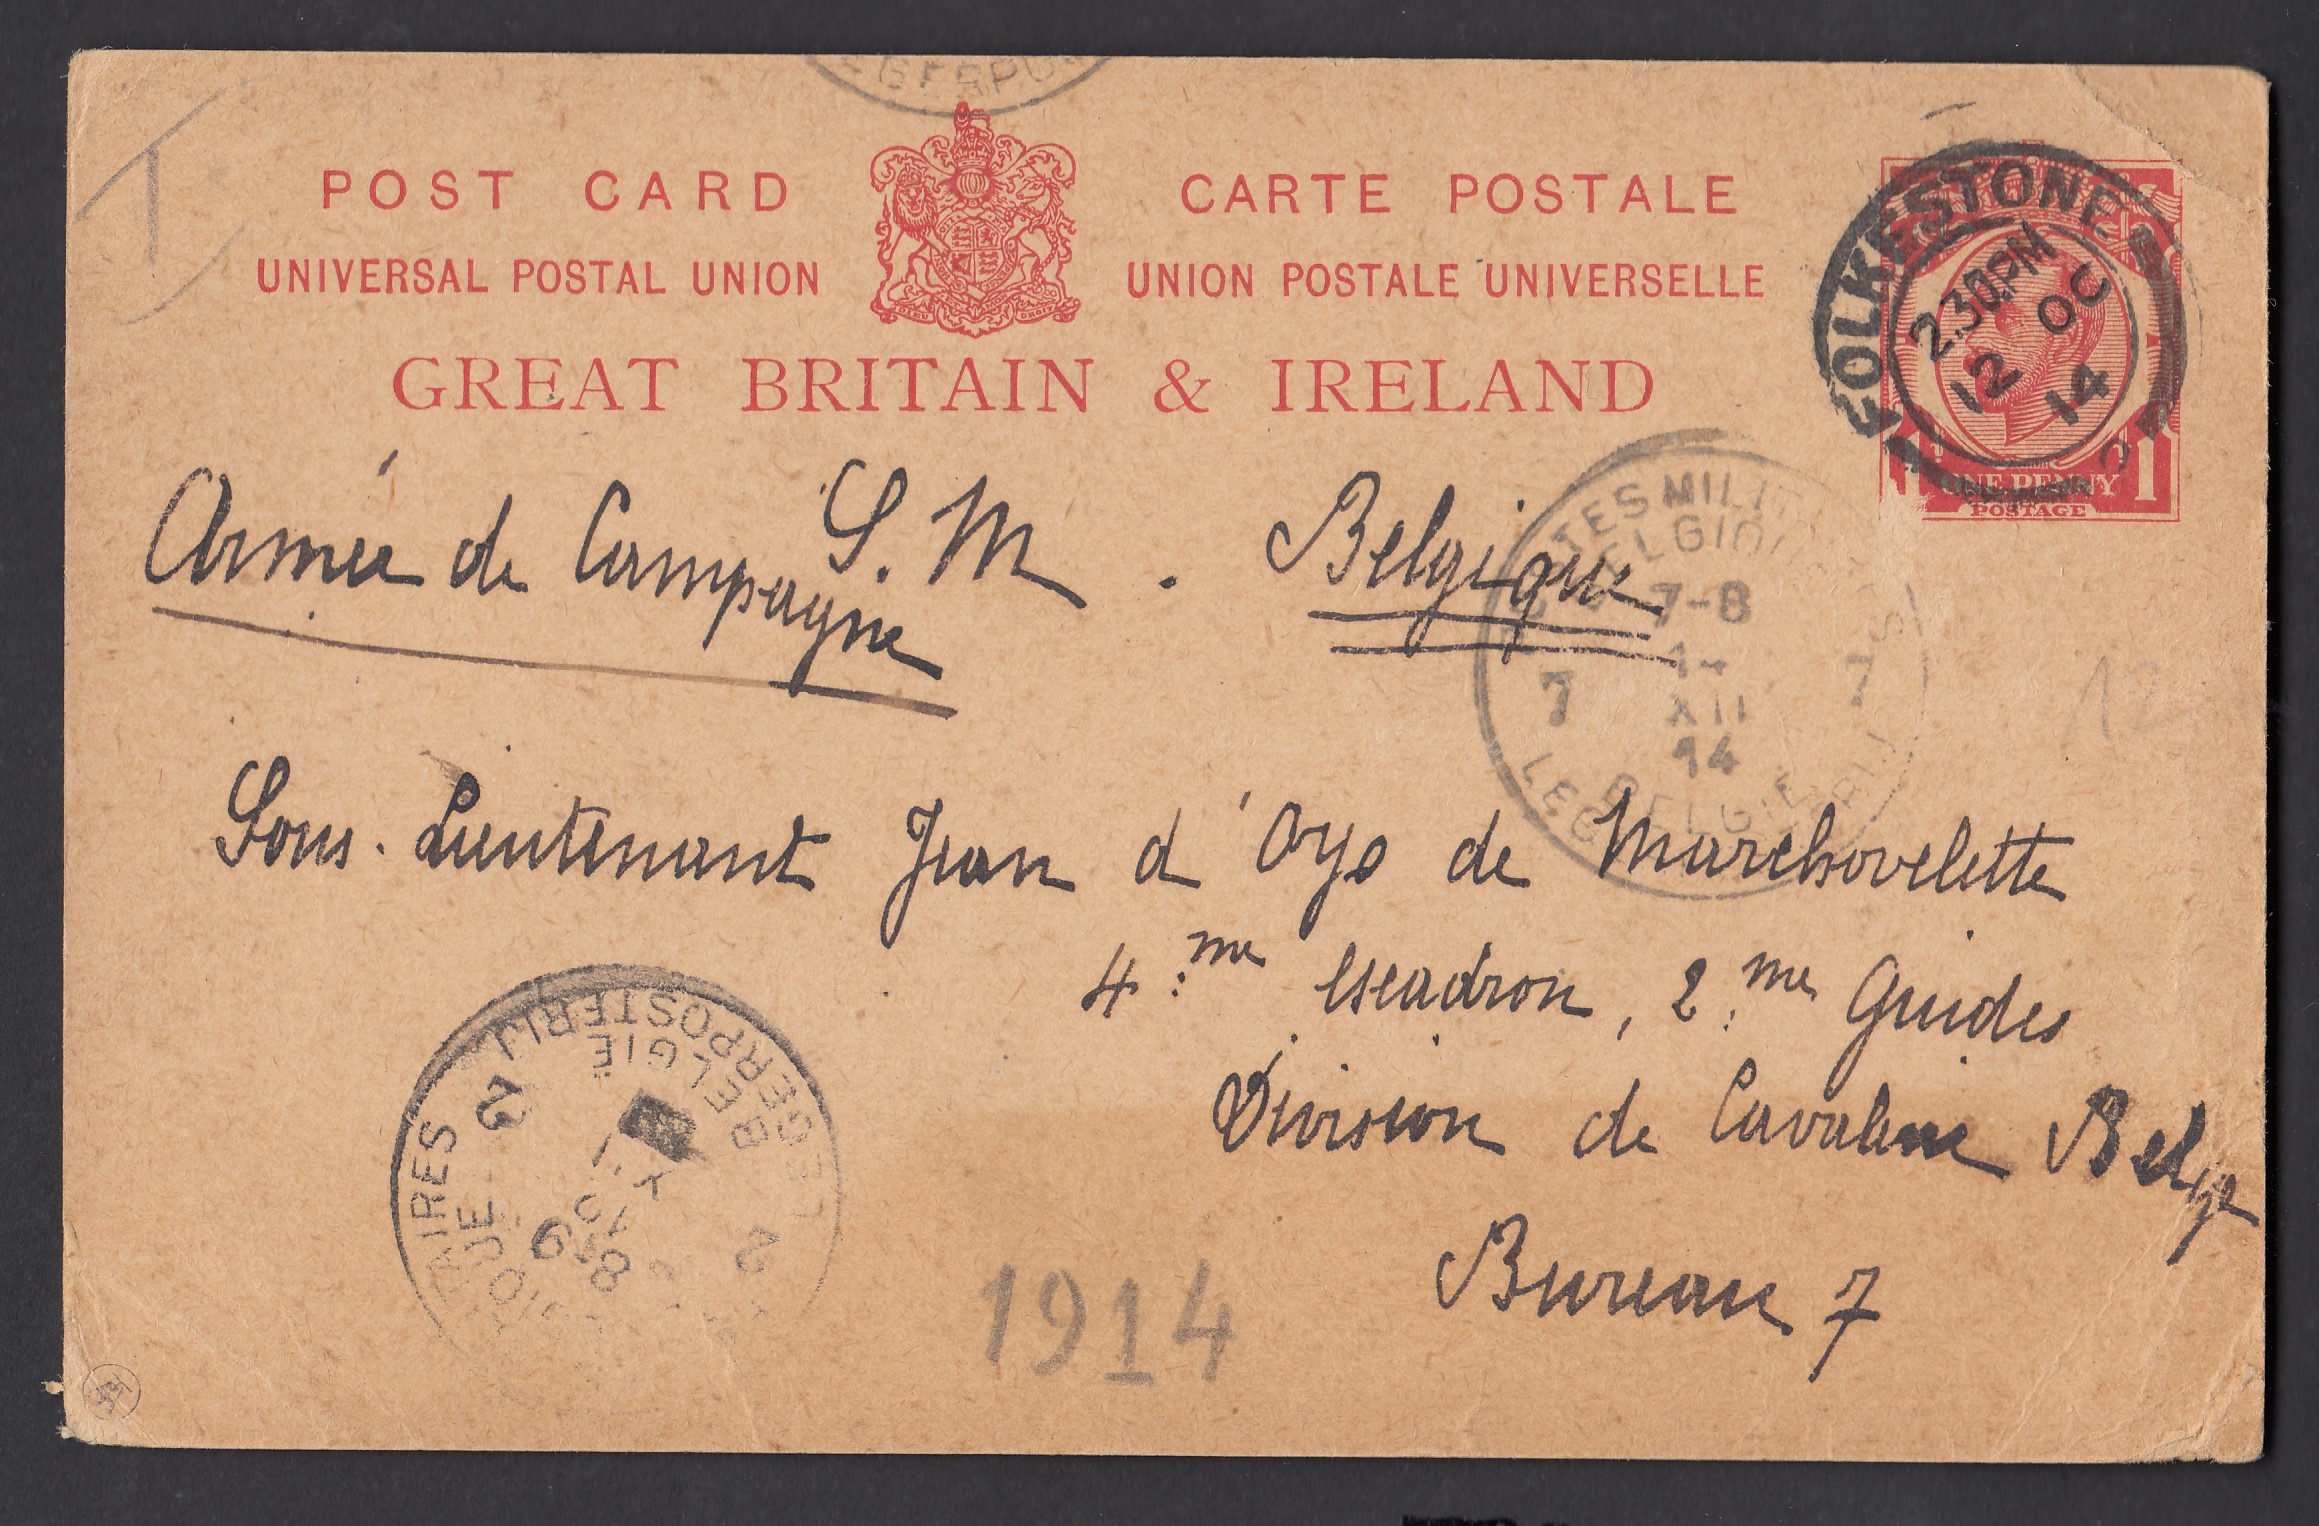 POST CARD
CARTE POSTALE
UNIVERSAL POSTAL UNION
UNION POSTALE UNIVERSELLE
GREAT BRITAIN & IRELAND
FOLKESTONE
2.30PM
12 OC
14
ONE PENNY
POSTAGE
1
T
Armée de Campagne S. M. Belgique
7-8
14
XII
14
7 7
BELGIE
12
Sous-Lieutenant Jean d'Oyo de Marchovelette
4:me escadron, 2:me Guides
Division de Cavalerie Belge
Bureau 7
LEGERPOSTERIJ
BELGIE
2 2
1914